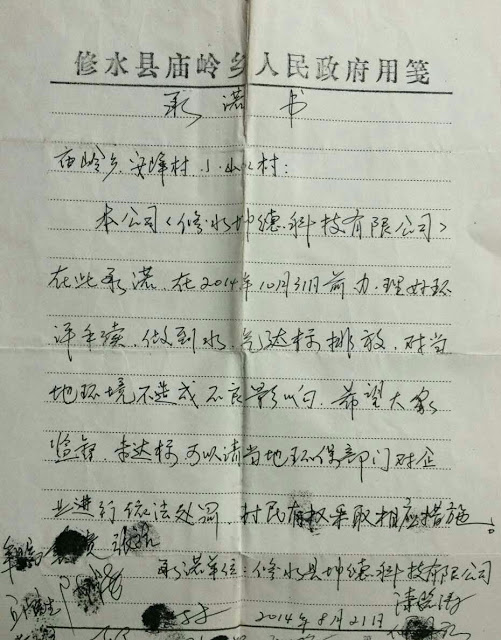 修水县庙岭乡人民政府用笺
承诺书
庙岭乡、安峰村、小山口村:
本公司《修水坤德科技有限公司》
在此承诺,在2014年10月31日前办理好环
评手续,做到水、气达标排放,对当
地环境不造成不良影响,希望大家
监督,未达标可以请当地环保部门对企
业进行依法处罚,村民有权采取相应措施。
承诺单位:修水县坤德科技有限公司
2014年8月21日